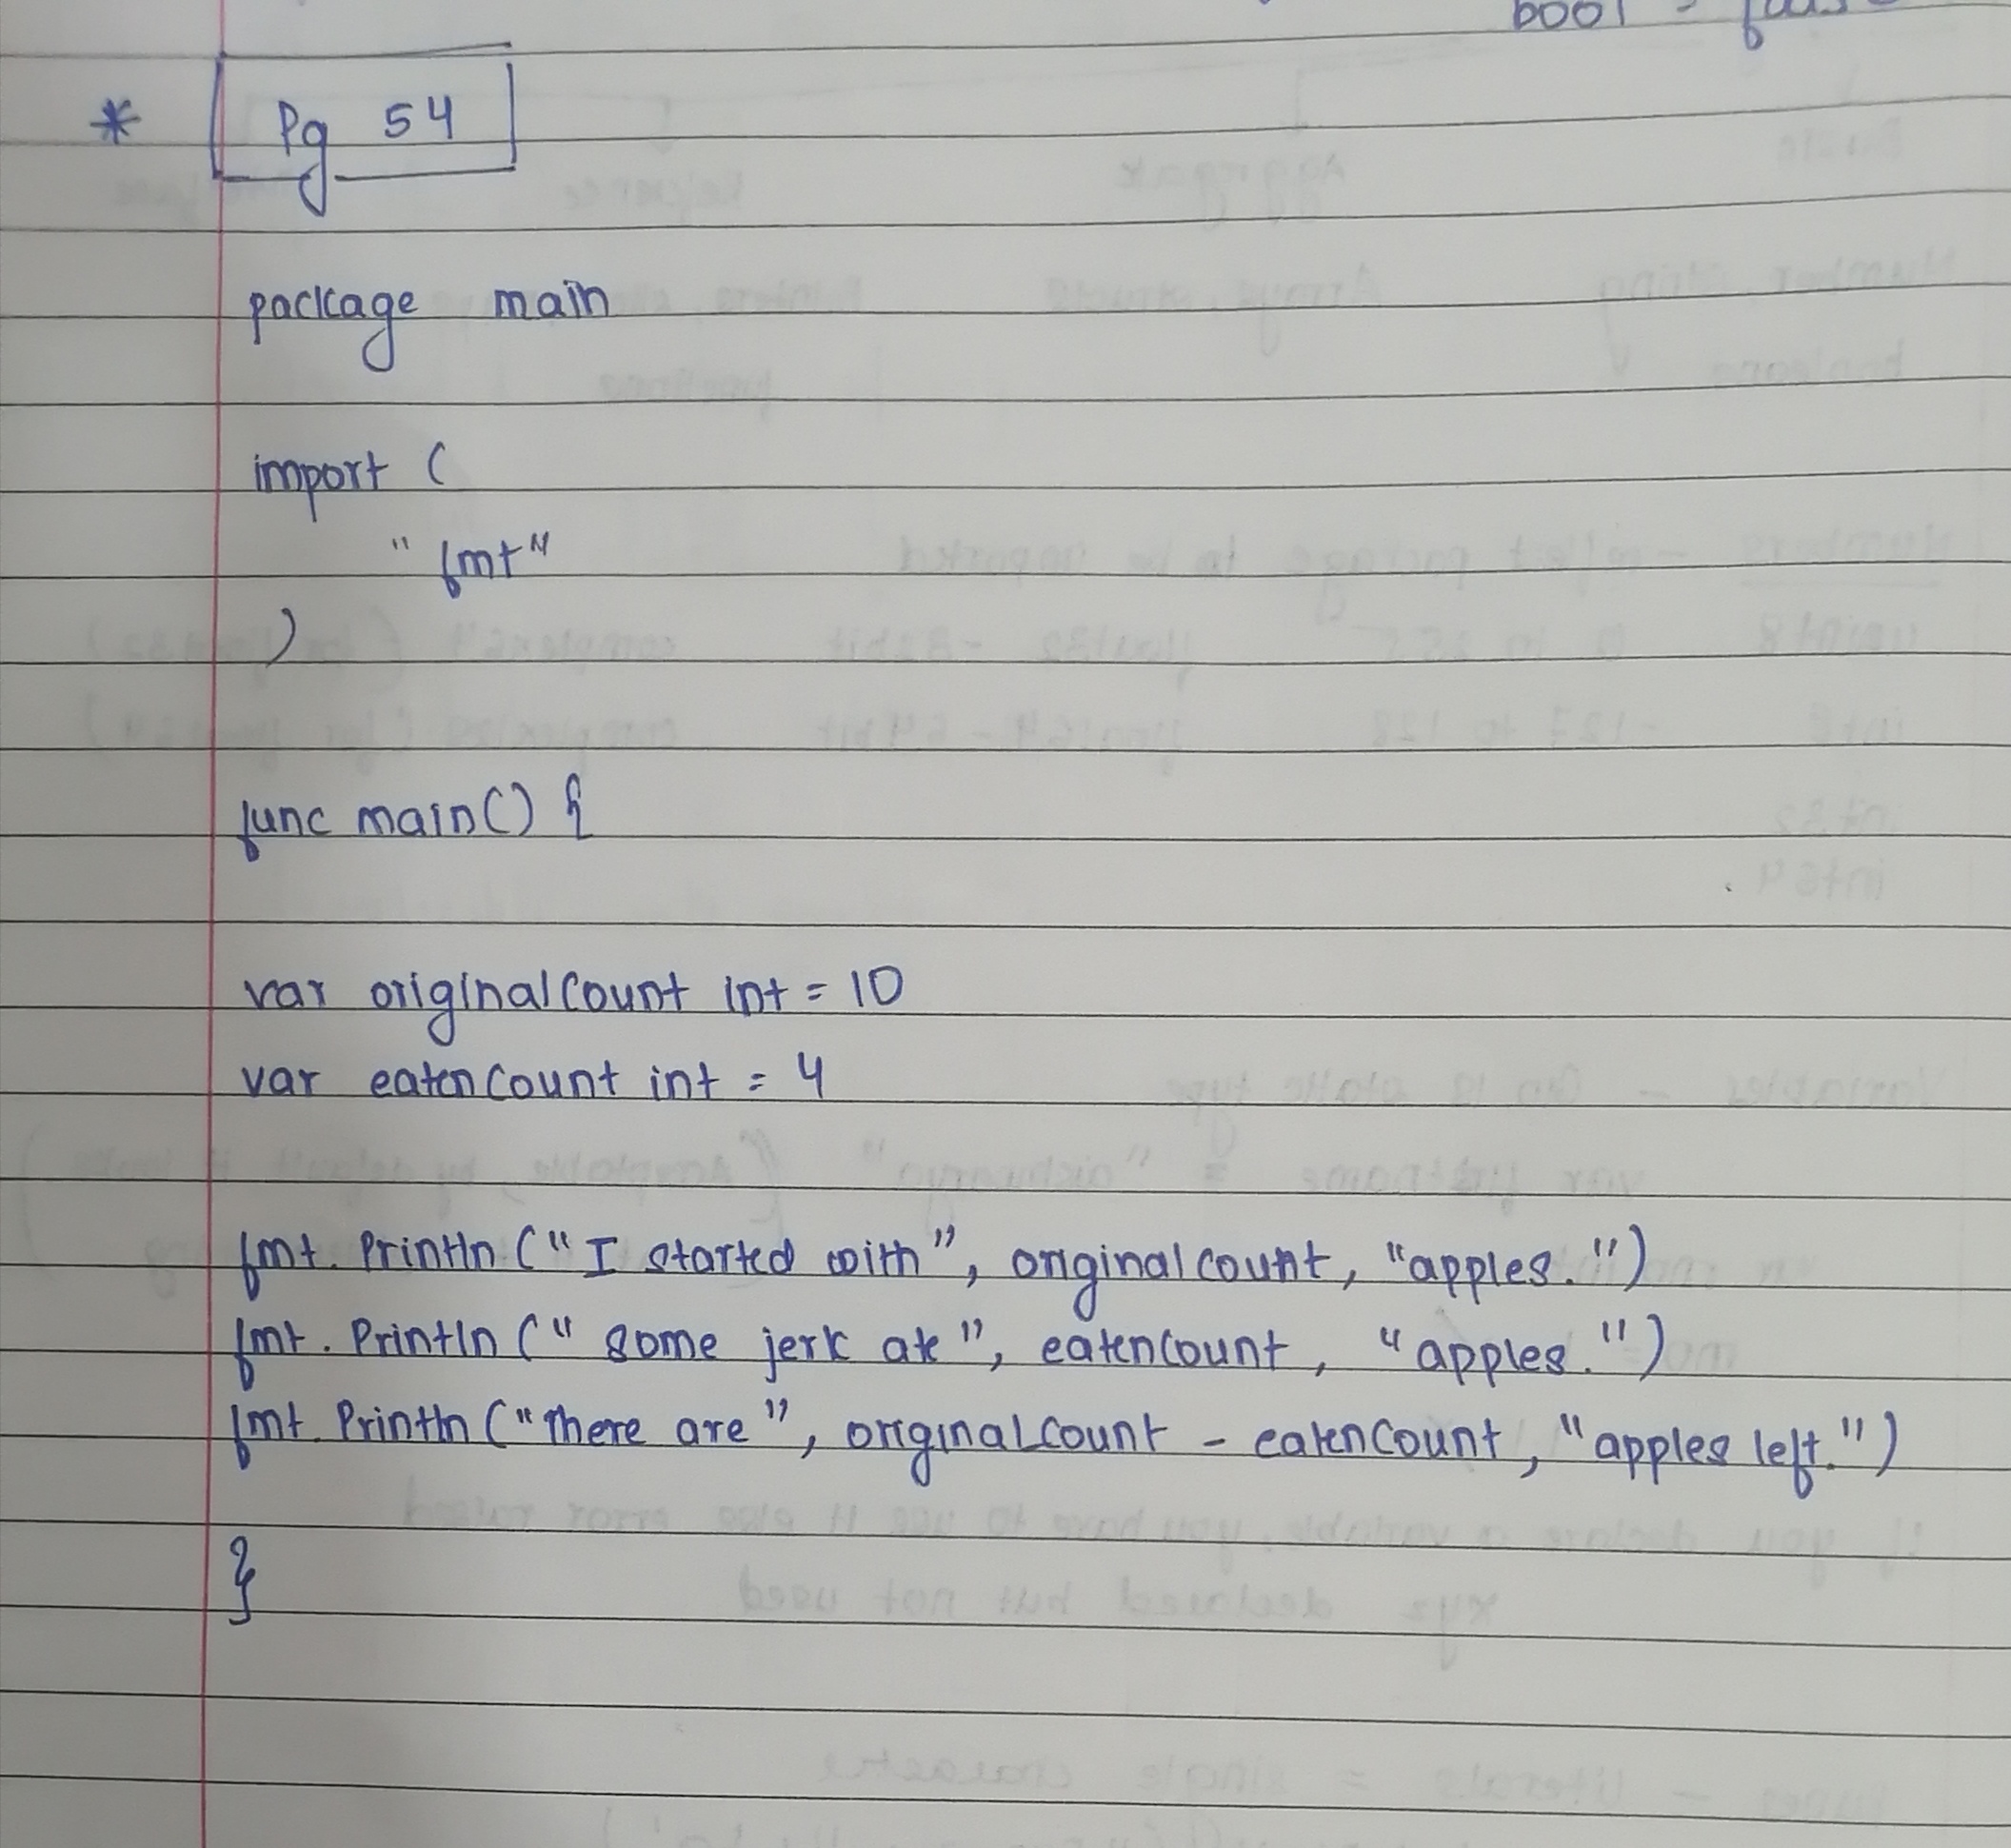 bool -
* Pg 54
package main
import (
"fmt"
)
func main() {
var originalCount int = 10
var eatenCount int = 4
fmt.Println("I started with", originalcount, "apples.")
fmt.Println("some jerk ate", eatencount, "apples.")
fmt.Println("There are", originalcount - eatencount, "apples left.")
}